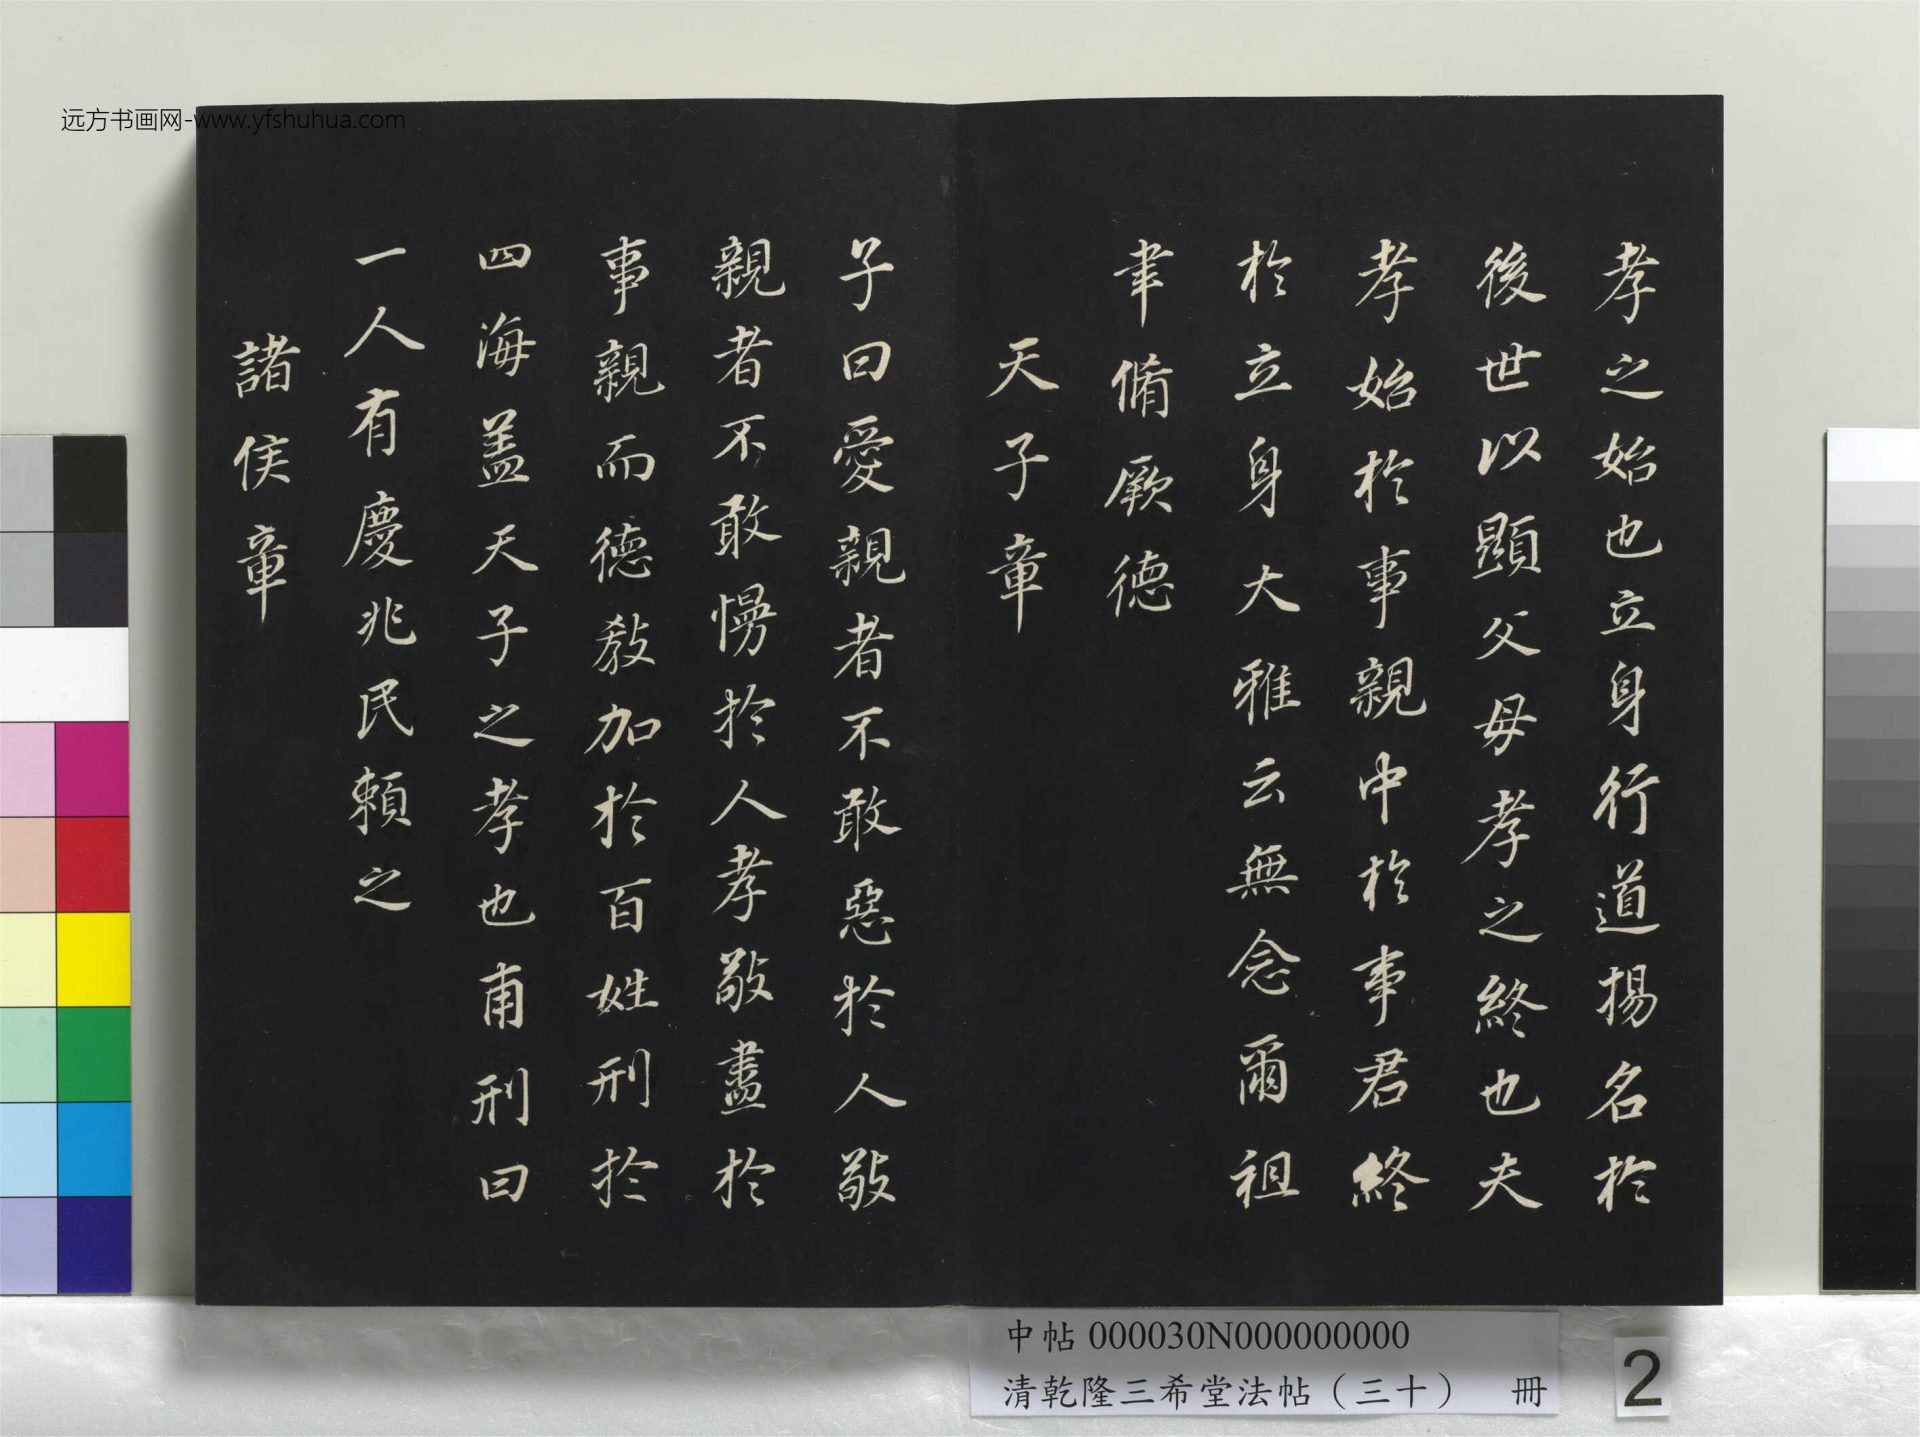 远方书画网-www.yfshuhua.com
孝之始也立身行道揚名於
後世以顯父母孝之終也夫
孝始於事親中於事君終
於立身大雅云無念爾祖
聿脩厥德
天子章
子曰愛親者不敢惡於人敬
親者不敢慢於人孝敬盡於
事親而德教加於百姓刑於
四海盖天子之孝也甫刑曰
一人有慶兆民賴之
諸侯章
中帖 000030N000000000
清乾隆三希堂法帖（三十） 冊
2